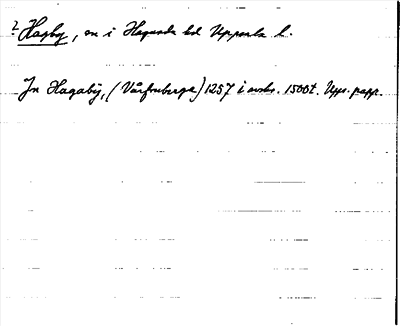 ? Hagby, sn i Hagunda hd Uppsala l.
Jn Hagaby, (Vårfruberga) 1257 i avskr. 1500 t. Upps. papp.